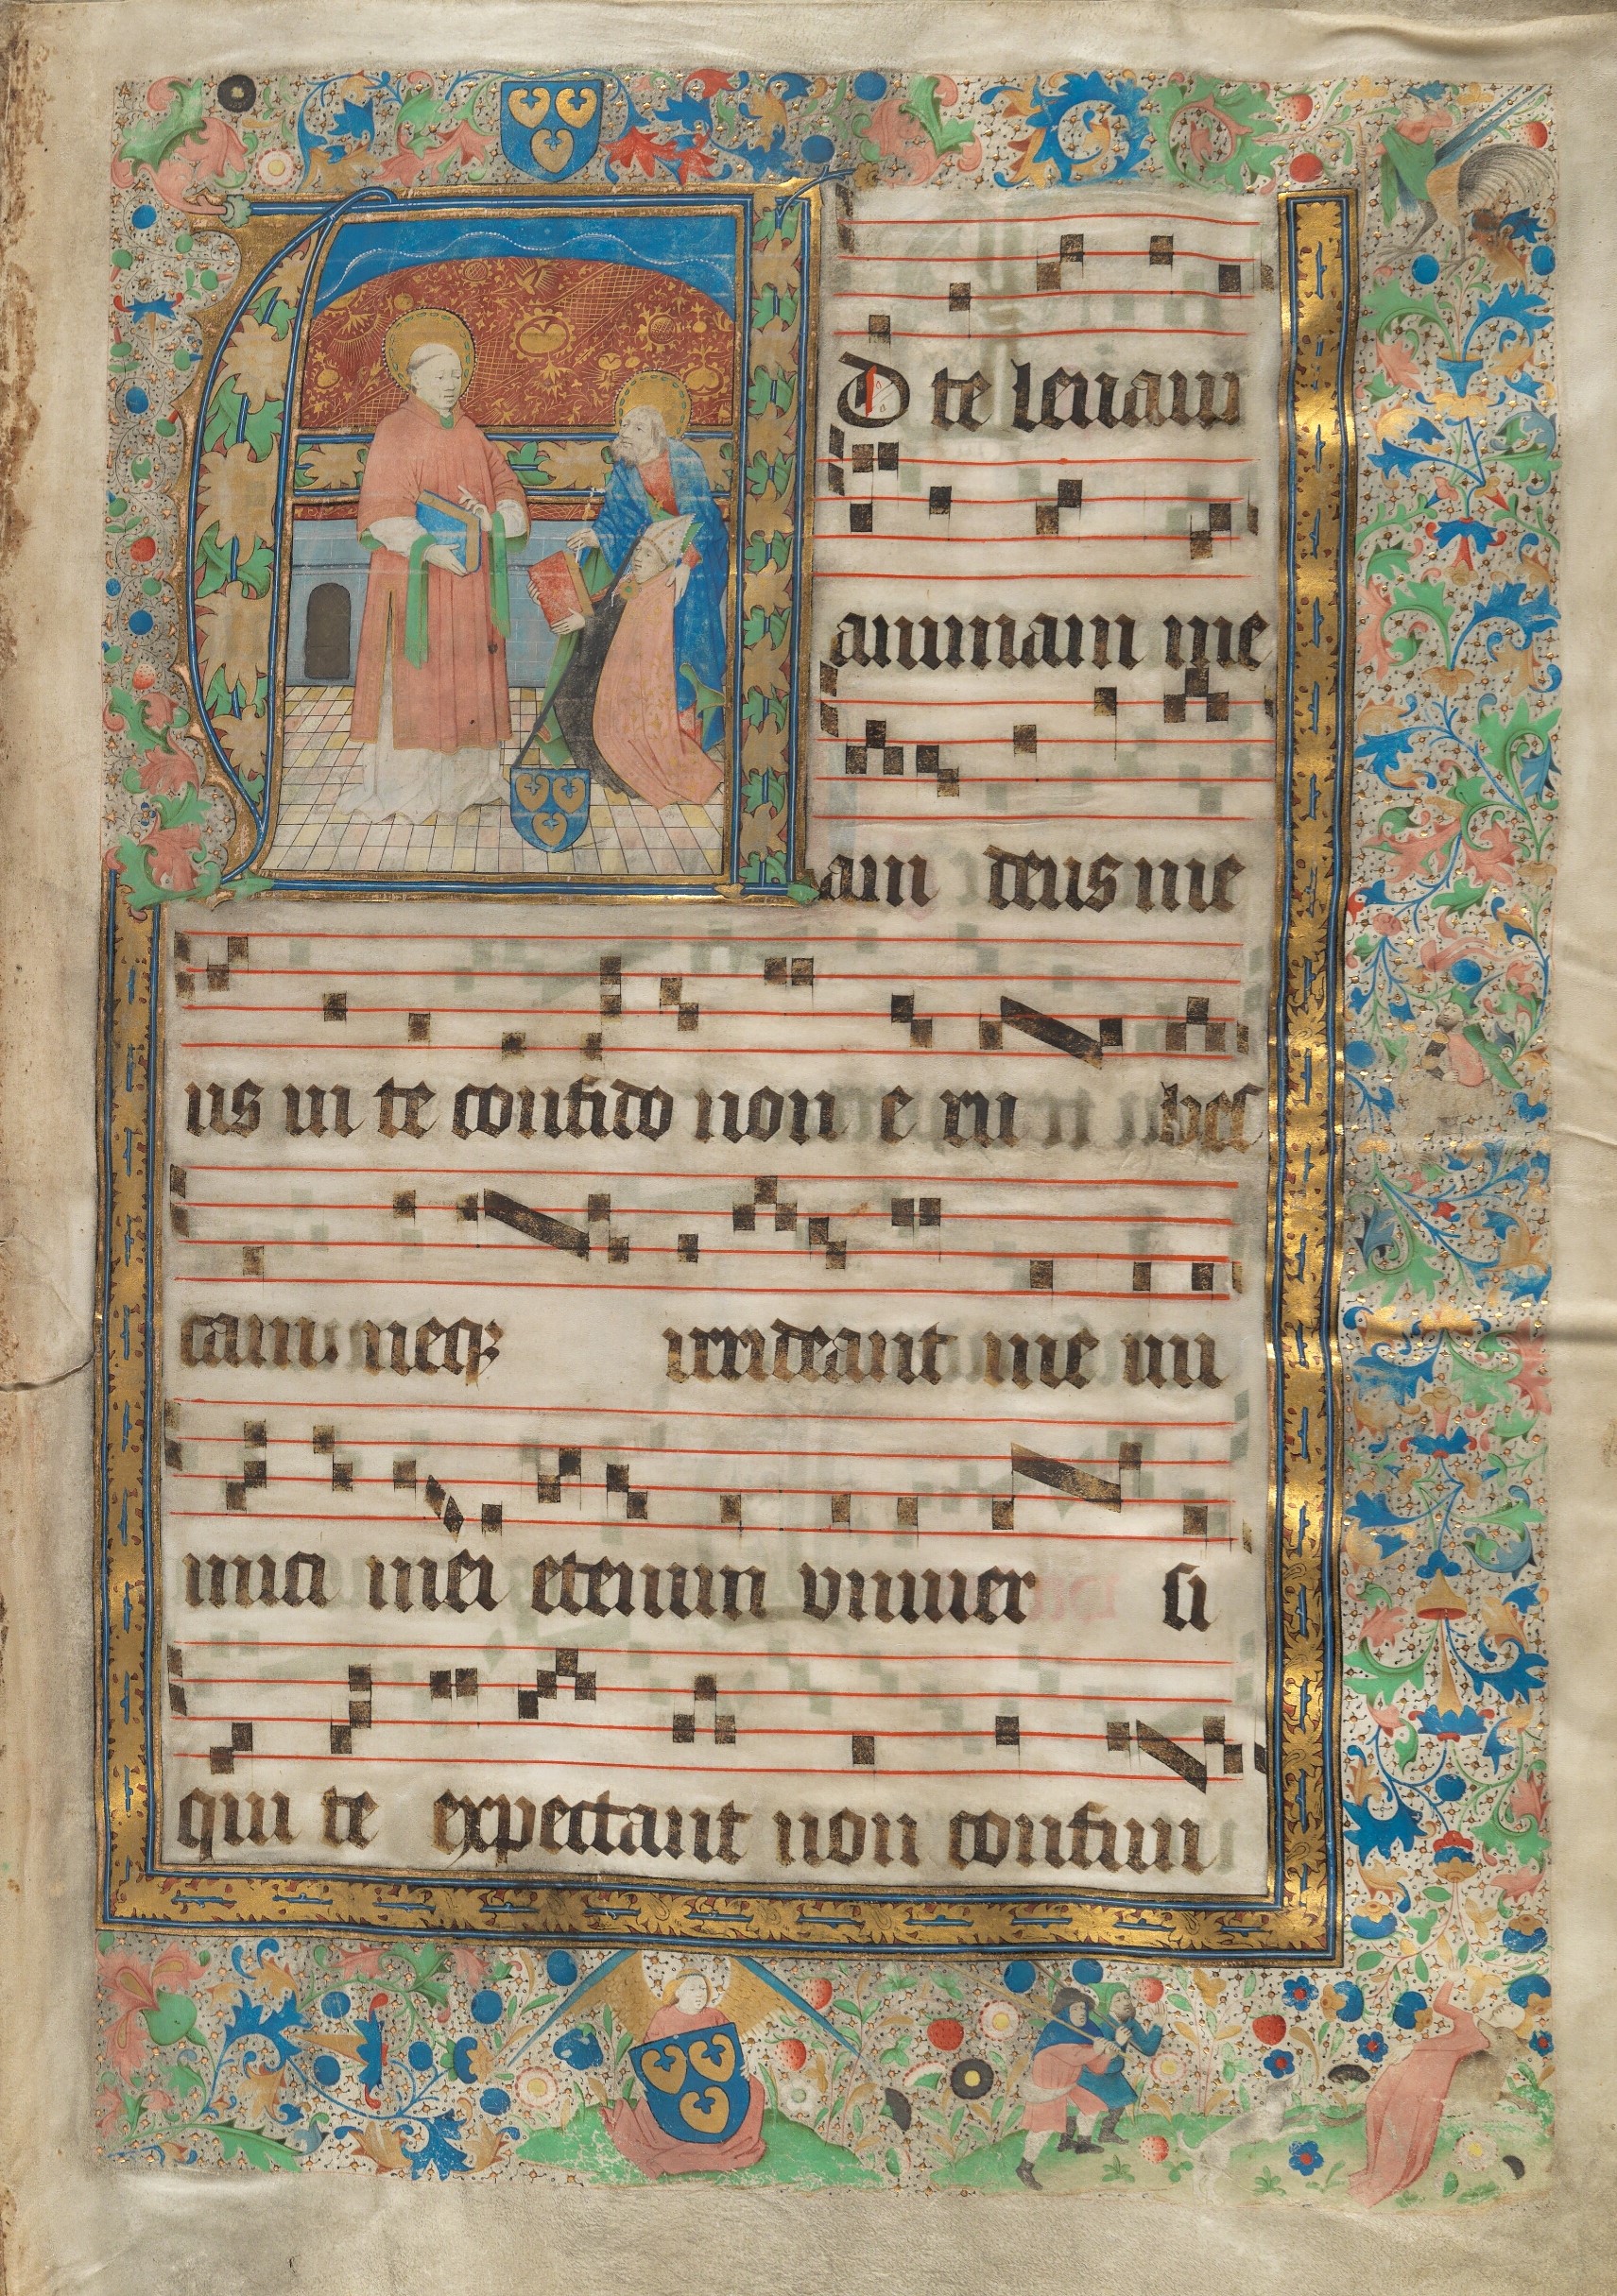 AD te leuaui
animam me
am deus me
us in te confido non e ru bes
cam neqꝫ irrideant me ini
mici mei etenim vniuer si
qui te expectant non confun